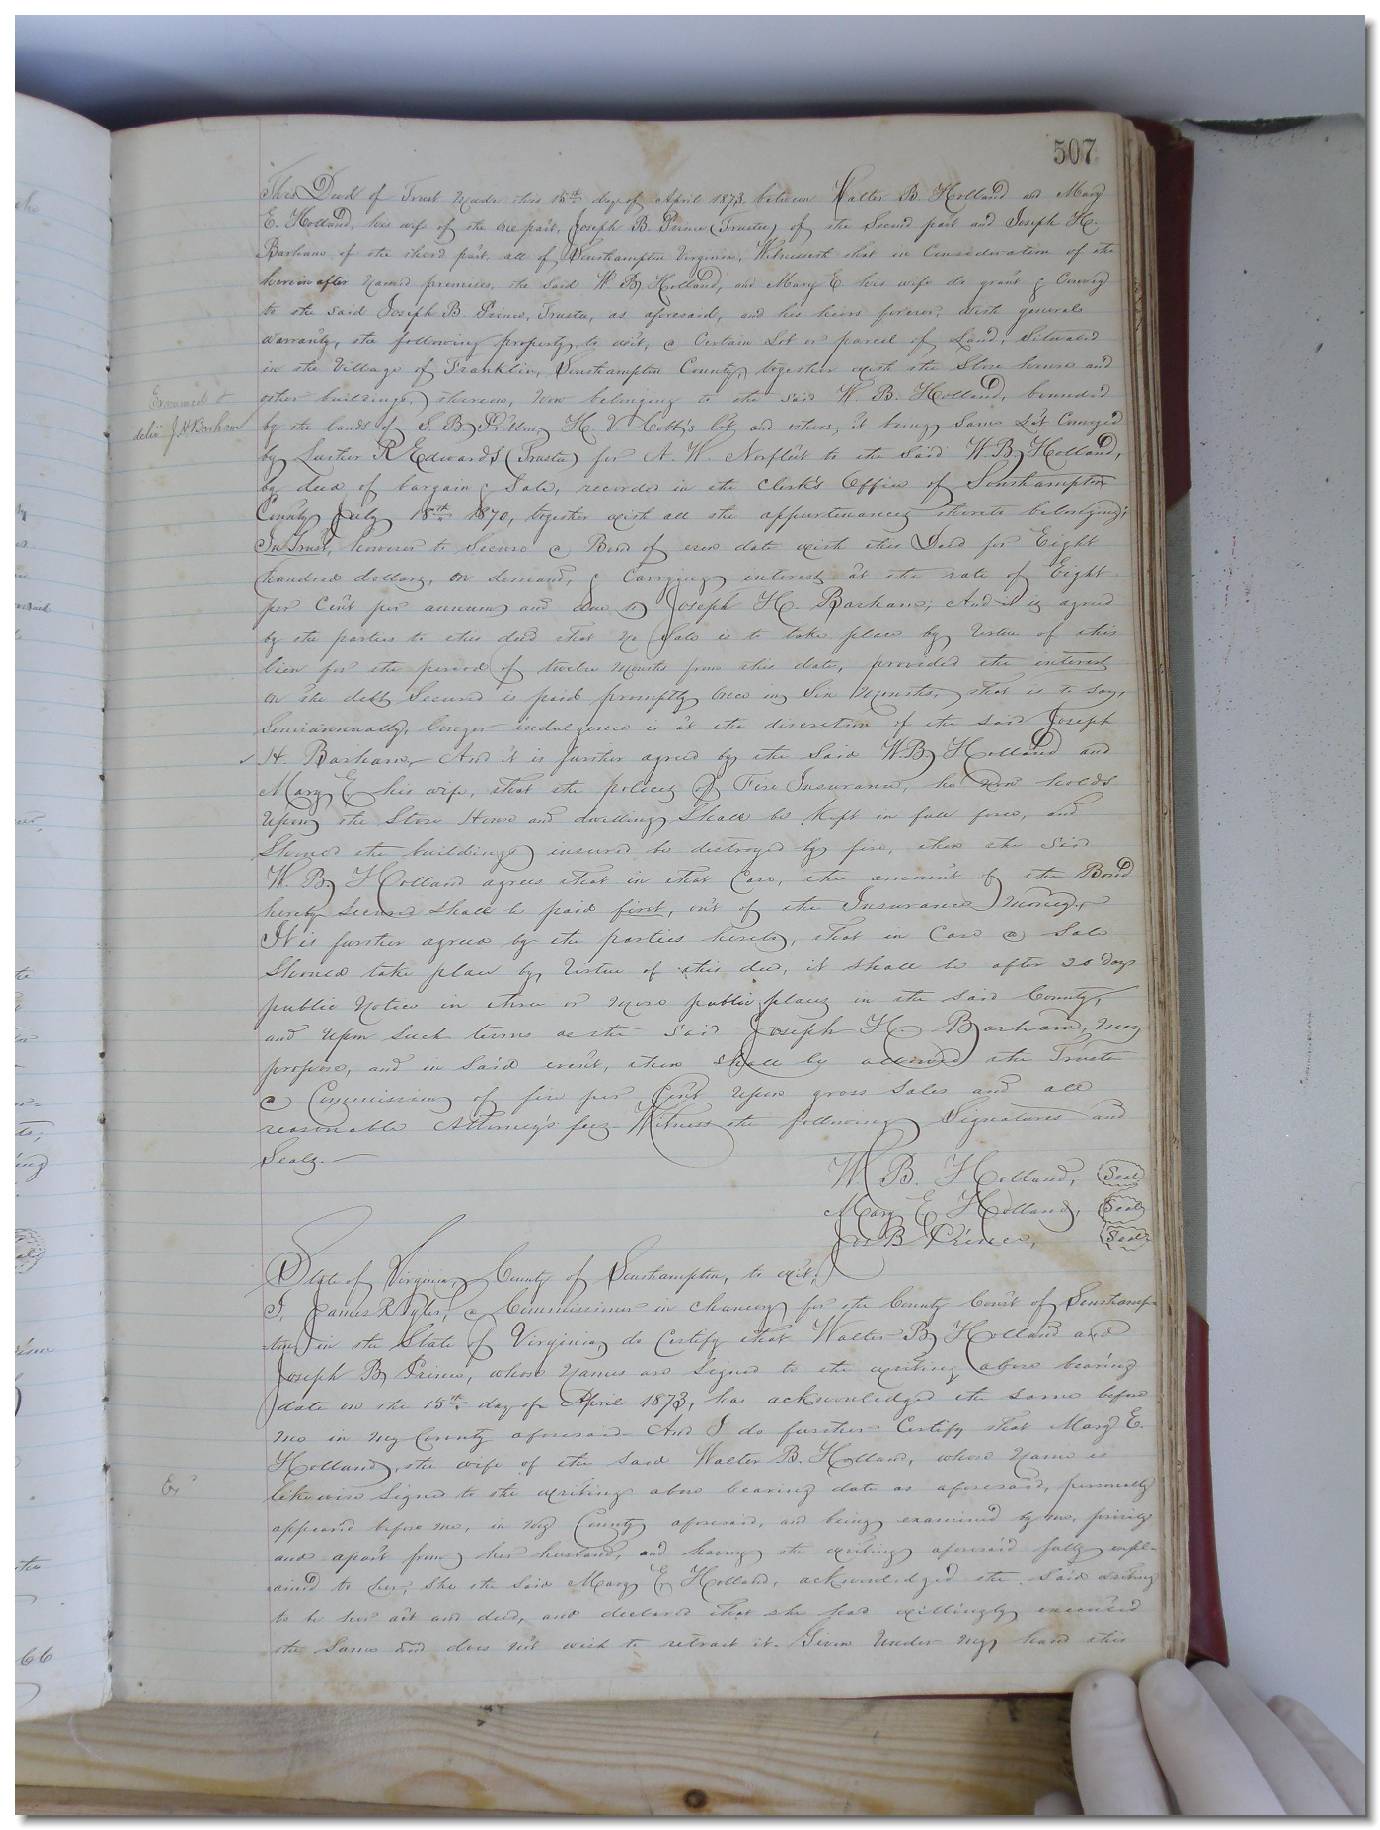 507
This Deed of Trust made this 15th day of April 1873, between Walter B. Holland and Mary
E. Holland, his wife of the one part, Joseph B. Prince (Trustee) of the Second part and Joseph H.
Barham, of the third part, all of Southampton Virginia, Witnesseth that in Consideration of the
herein after named premises, the said W. B. Holland, and Mary E. his wife do grant & Convey
to the said Joseph B. Prince, Trustee, as aforesaid, and his heirs forever, with general
warranty, the following property, to wit, a Certain Lot or parcel of Land, Situated
in the Village of Franklin, Southampton County, together with the Store house and
other buildings, thereon, now belonging to the said W. B. Holland, bounded
Examined &
deliv J. H. Barham
by the lands of S. B. H. V. Cobb's lot and others, it being same Lot Conveyed
by R Edwards (Trustee) for A. W. Norfleet to the said W. B. Holland,
by deed of bargain & Sale, recorded in the Clerk's Office of Southampton
County July 18th 1870, together with all the appurtenances thereto belonging;
In Trust, however to Secure a Bond of even date with this Deed for Eight
hundred dollars, on demand, & Carrying interest at the rate of Eight
per Cent per annum and due to Joseph H. Barham; And it is agreed
by the parties to this deed that no Sale is to take place by Virtue of this
lien for the period of twelve months from this date, provided the interest
on the debt Secured is paid promptly once in Six months, that is to say,
Semiannually, longer indulgence is at the discretion of the said Joseph
H. Barham, And it is further agreed by the said W. B. Holland and
Mary E. his wife, that the policy of Fire Insurance, he now holds
upon the Store House and dwelling Shall be Kept in full force, and
Should the buildings insured be destroyed by fire, then the said
W. B. Holland agrees that in that Case, the amount of the Bond
hereby Secured shall be paid first, out of the Insurance money.
It is further agreed by the parties hereto, that in Case a Sale
Should take place by Virtue of this deed, it shall be after 20 days
public Notice in three or more public places in the said County,
and upon such terms as the said Joseph H. Barham, may
propose, and in said event, there shall be allowed the Trustee
a Commission of five per Cent upon gross Sales and all
reasonable Attorney's fees. Witness the following Signatures and
Seals.
W. B. Holland, Seal
Mary E. Holland, Seal
Jos B Prince, Seal
State of Virginia, County of Southampton, to wit,
I, James R Tyler, a Commissioner in Chancery for the County Court of Southamp-
ton in the State of Virginia, do Certify that Walter B. Holland and
Joseph B. Prince, whose names are Signed to the writing above bearing
date on the 15th day of April 1873, has acknowledged the same before
me in my County aforesaid. And I do further Certify that Mary E.
Holland, the wife of the said Walter B. Holland, whose name is
likewise Signed to the writing above bearing date as aforesaid, personally
appeared before me, in my County aforesaid, and being examined by me, privily
and apart from her husband, and having the writing aforesaid fully expl-
ained to her, She the said Mary E. Holland, acknowledged the said writing
to be her act and deed, and declared that she had willingly executed
the same and does not wish to retract it. Given under my hand this